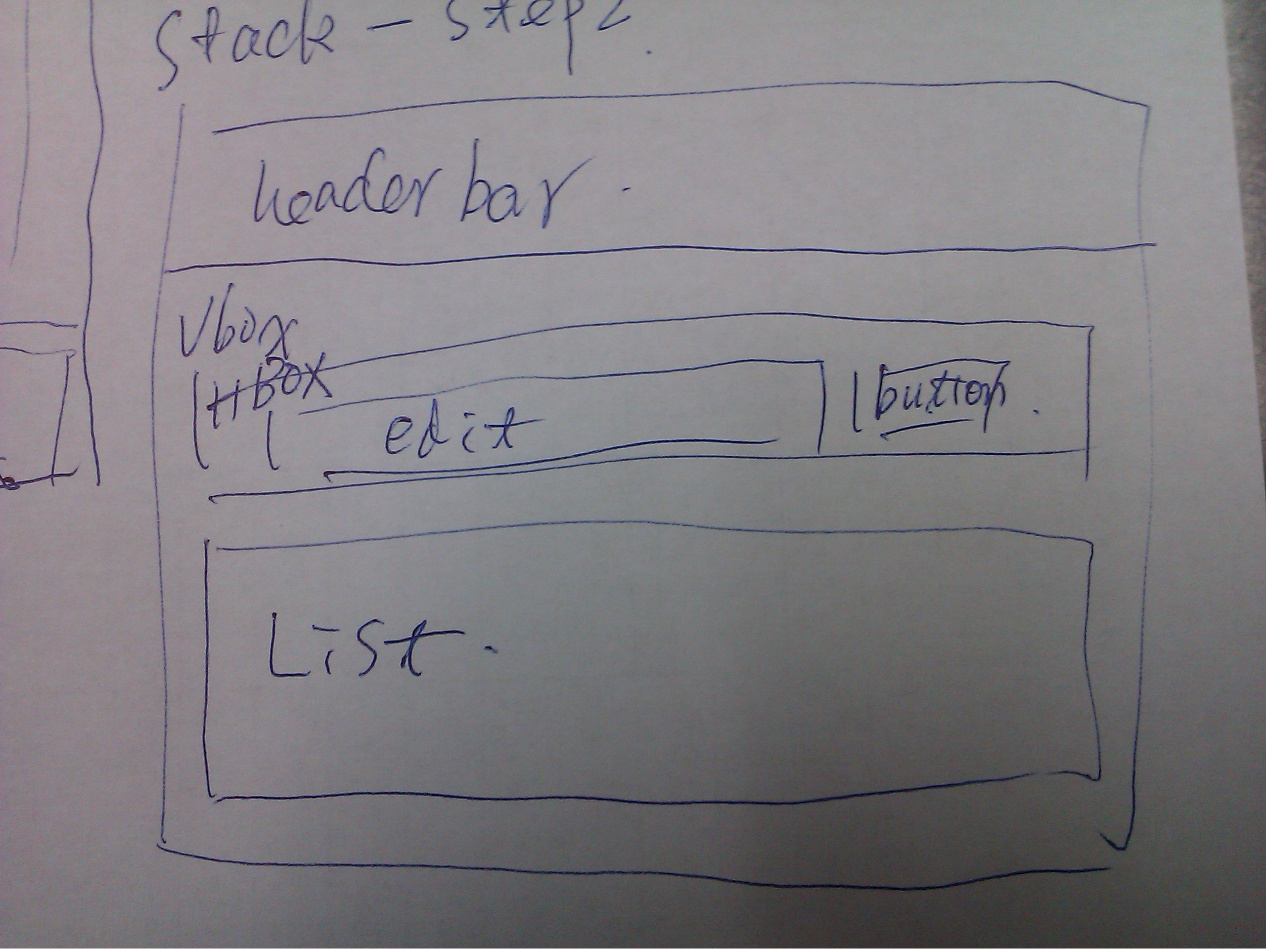 Stack - Step2.
header bar.
Vbox
HBOX
edit
button.
List.